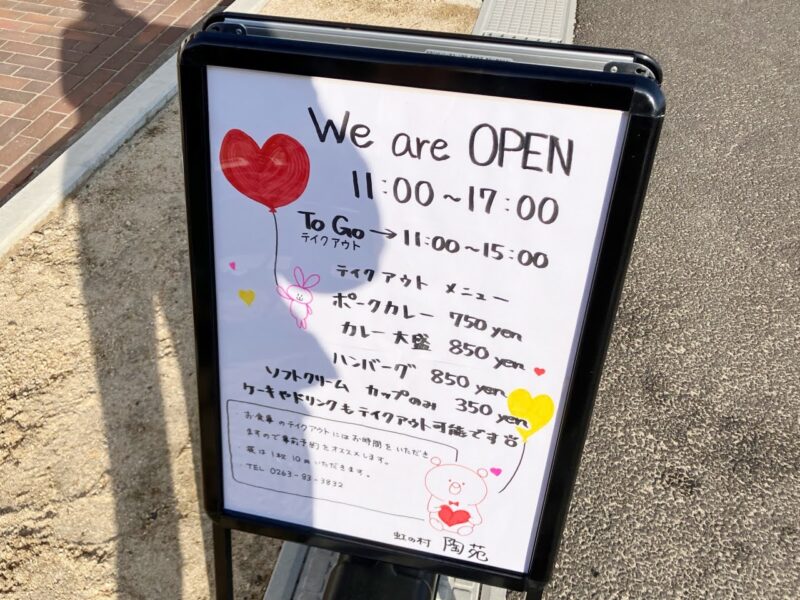 We are OPEN
11:00~17:00
To Go → 11:00~15:00
テイクアウト
テイクアウト メニュー
ポークカレー 750 yen
カレー大盛 850 yen
ハンバーグ 850 yen
ソフトクリーム カップのみ 350 yen
ケーキやドリンクもテイクアウト可能です
・お食事のテイクアウトにはお時間をいただき
ますので事前予約をオススメします。
・袋は1枚10円いただきます。
・TEL 0263-83-3832
虹の村 陶苑